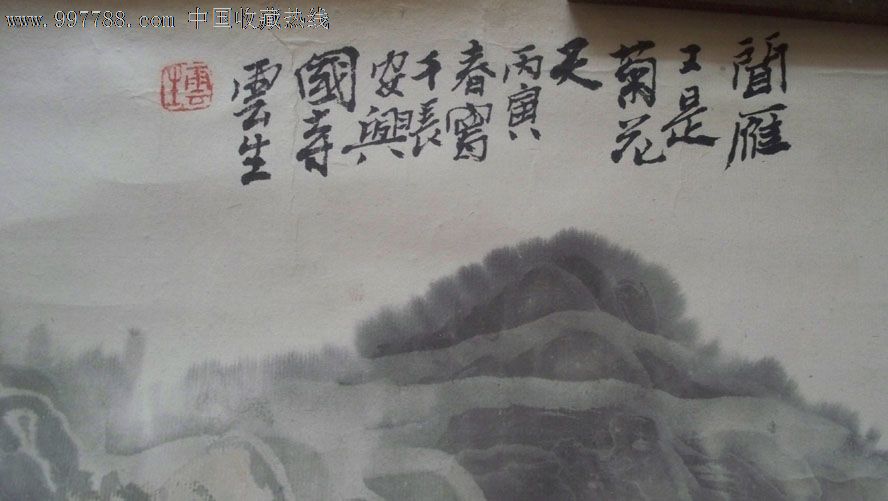 www.997788.com 中国收藏热线
闻雁
正是
菊花
天
丙寅
春写
于长
安興
國寺
雲生